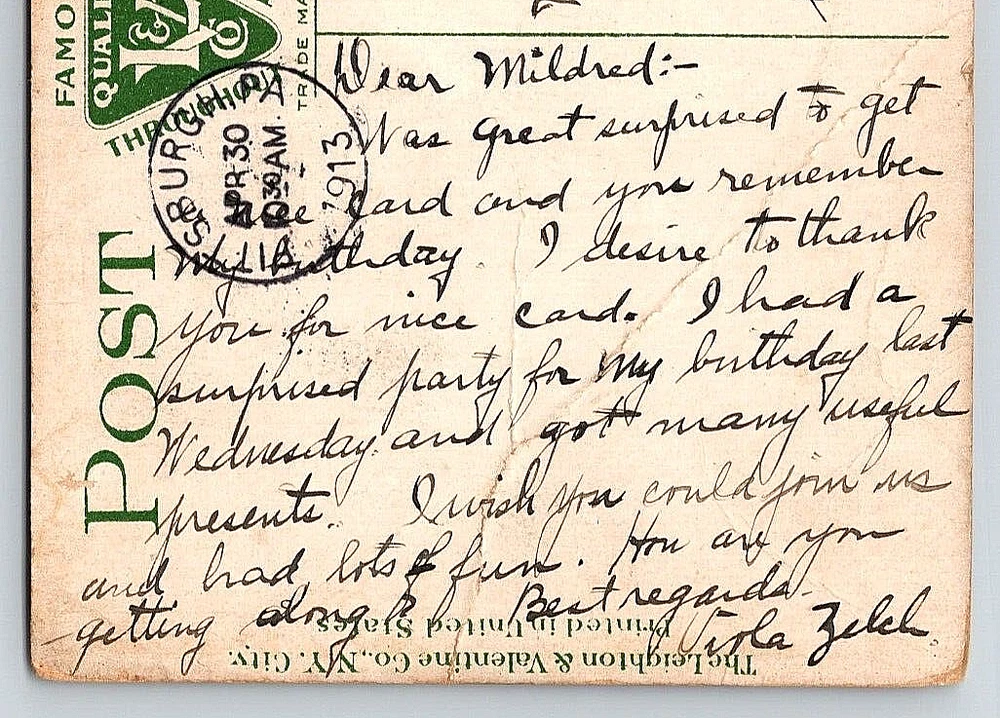 Dear Mildred:-
Was great surprised to get
nice card and you remember
my birthday. I desire to thank
you for nice card. I had a
surprised party for my birthday last
Wednesday and got many useful
presents. I wish you could join us
and had lots of fun. How are you
getting along? Best regards.
Viola Zelch.
POST
FAMO
QUALI
L&V Co
TRADE MA
THROUGHOU
SBURGH, PA
APR 30
10 30 AM
1913
PIT
The Leighton & Valentine Co., N.Y. City.
Printed in United States